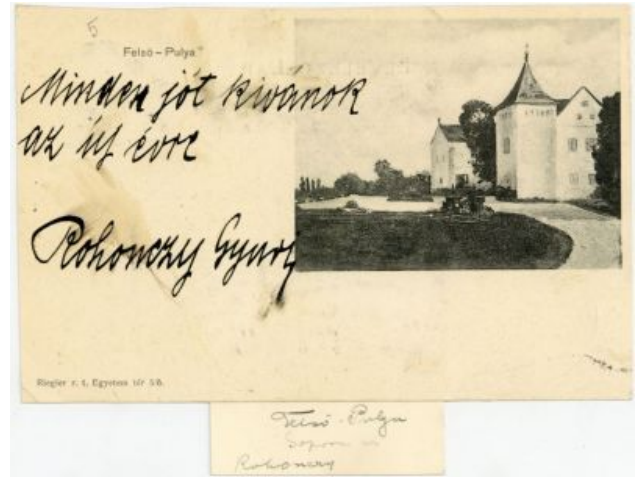 5
Felső – Pulya
Minden jót kívánok
az új évre
Rohonczy
Riegler r. t. Egyetem tér 5/6.
Felső-Pulya
Sopron m
Rohonczy